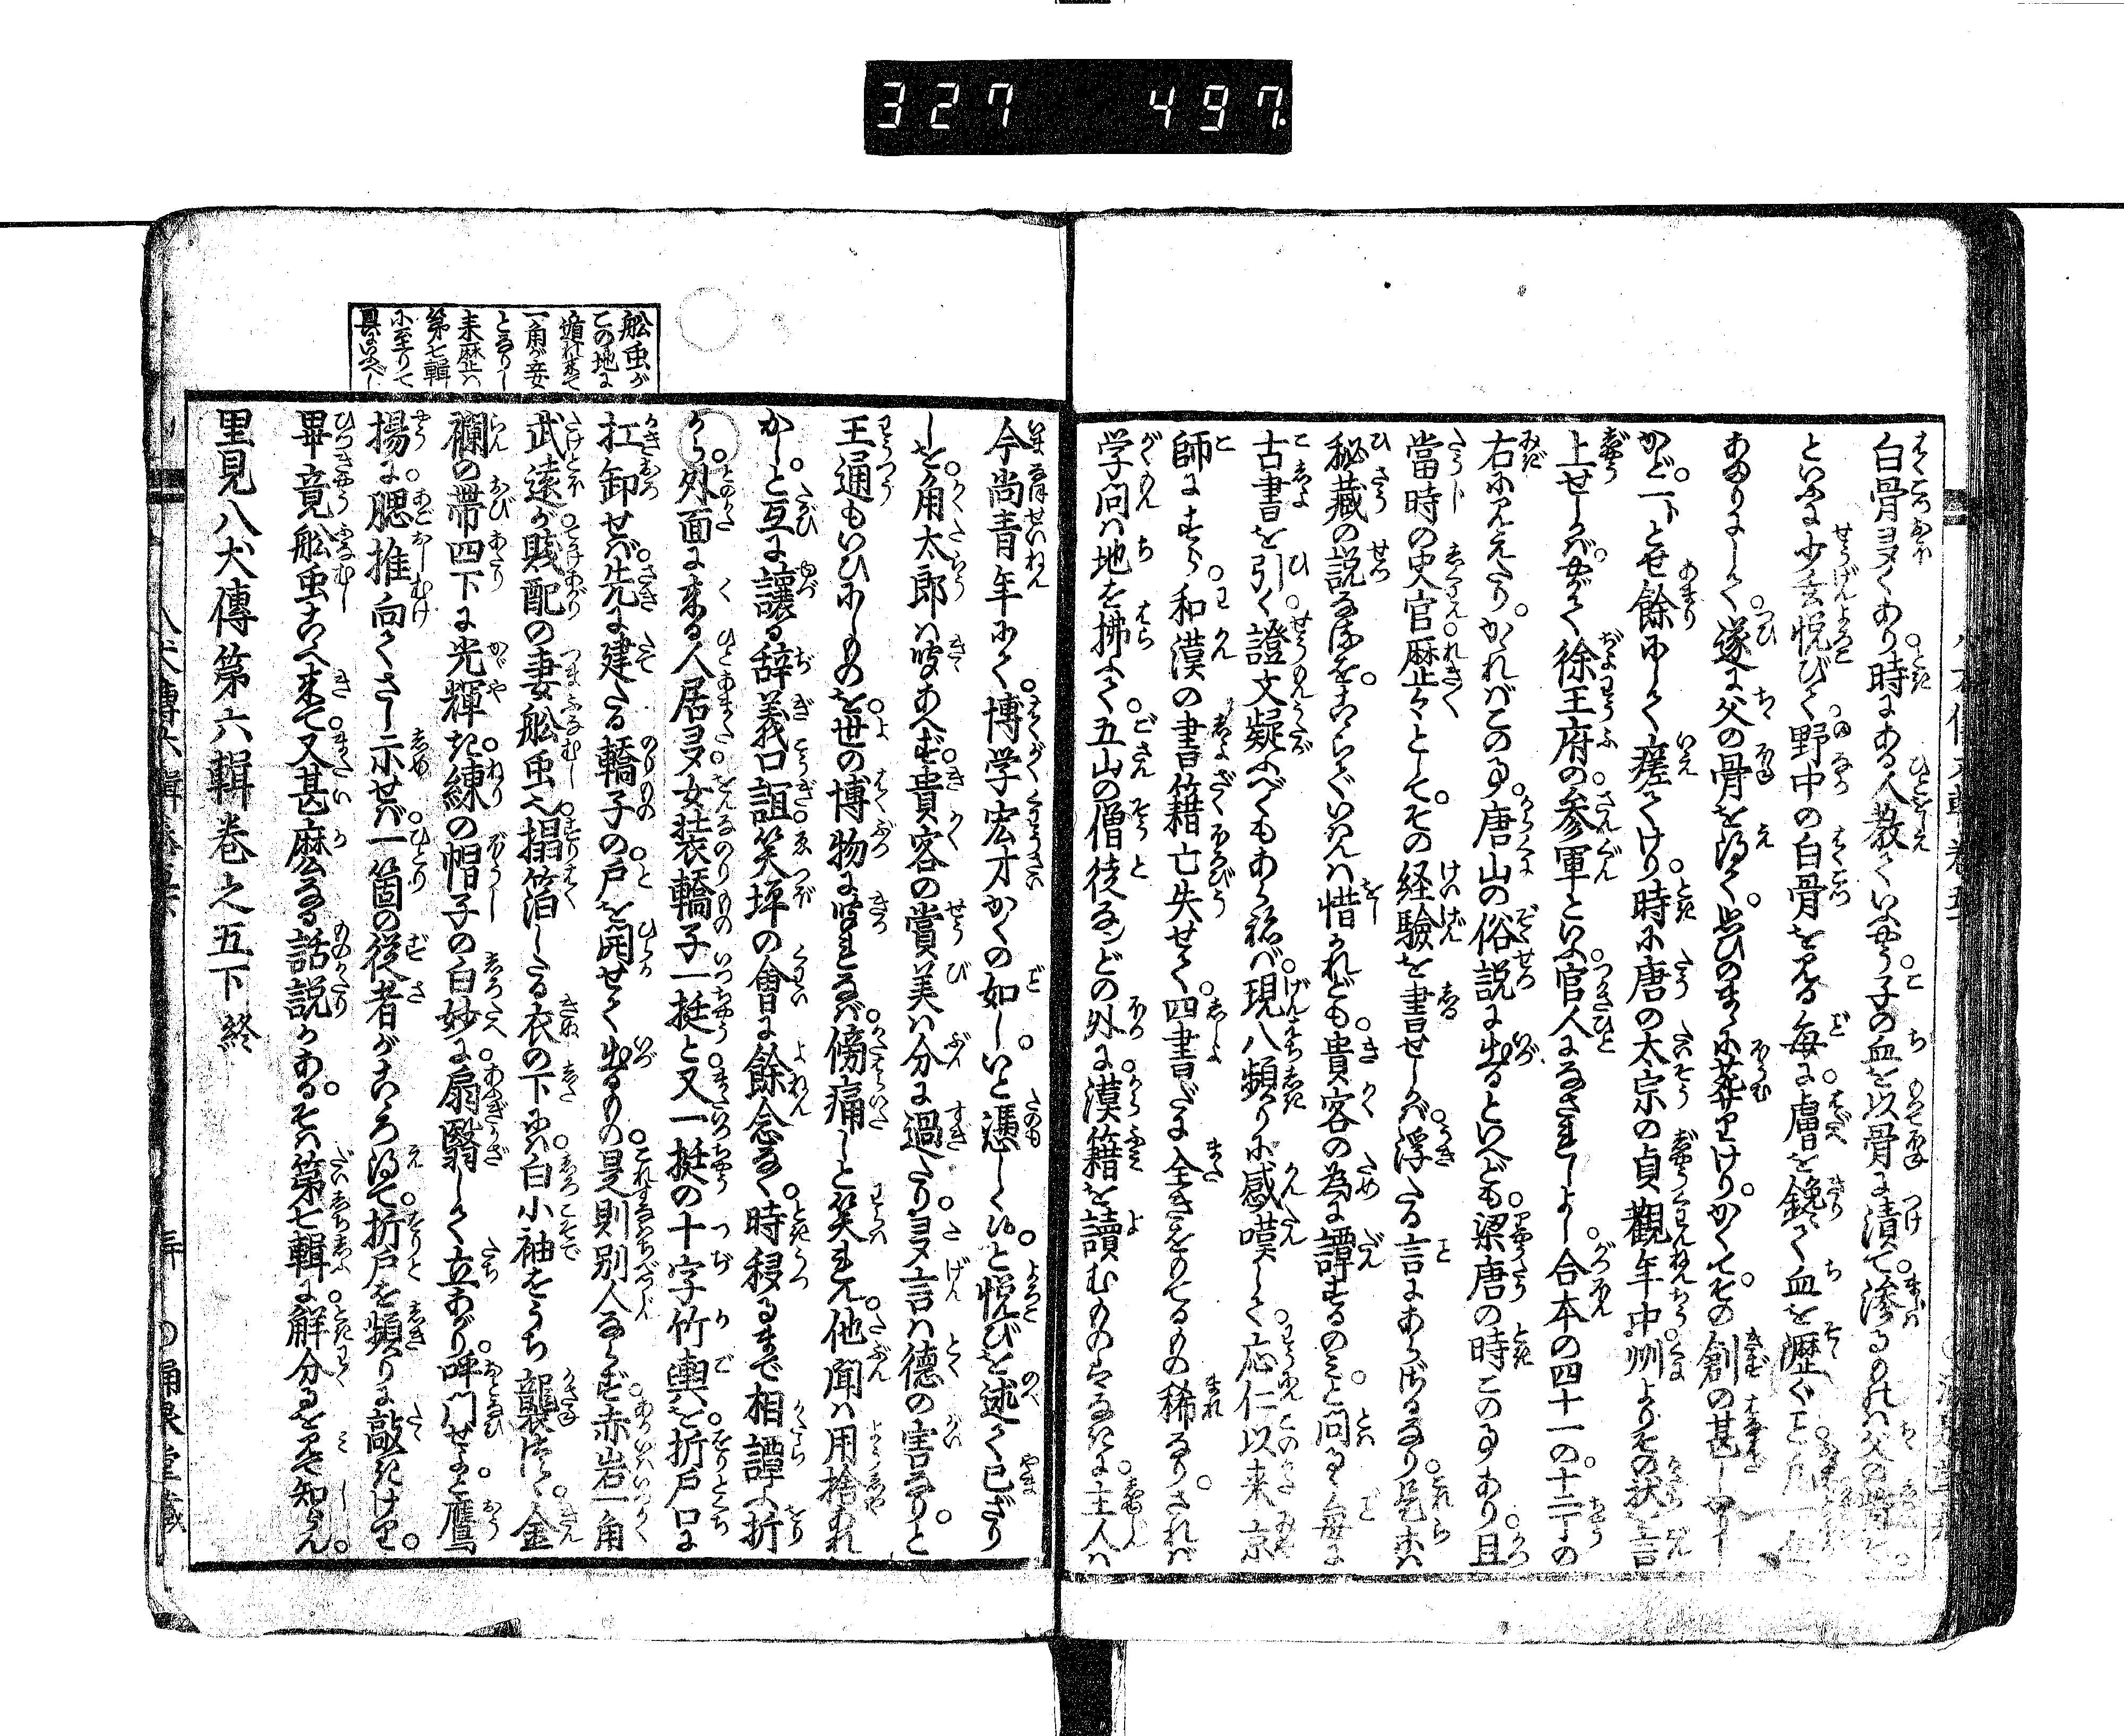 327 497
白骨夛くあり時にある人教ていふやう子の血を以骨に漬て滲るものは父の骨也
といふに少玄悦びて野中の白骨を見る毎に膚を鑱て血を瀝ぐこと凡一旬
あまりにして遂に父の骨を得て思ひのまゝに葬りけりかくてその創の甚しかり
かど一ト とせ餘にして瘥てけり時に唐の太宗の貞觀年中州よりその状を言
上せしかばやがて徐王府の参軍といふ官人になされしよし合本の四十一の十二丁の
右に見えたりかゝればこの事唐山の俗説に出るといへども梁唐の時この事あり且
當時の史官歴々としてその経驗を書せしかば浮たる言にあらざるなり是はこれ
秘藏の説なるをあからさまにいはんは惜けれども貴客の為に譚するのみと問るゝ毎に
古書を引く證文疑ふべくもあらねば現八頻りに感嘆して応仁以来京
師にすら和漢の書籍亡失せて四書だに全きをもてるもの稀なりされば
学問は地を拂ふて五山の僧徒などの外に漢籍を讀むものゝなきに主人は
今尚青年にして博学宏才かくの如しいと憑しくはべりと悦びを述て已ざり
しを角太郎は受あへず貴客の賞美は分に過たり夛言は徳の害なりと
王通もいひにしものを世の博物に笑れなば傍痛しと笑れん他聞は用捨あれ
かしと互に讓る辞義口誼笑坪の會に餘念なく時移るまで相譚ふ折
から外面に来る人居夛女装轎子一挺と又一挺の十字竹輿を折戸口に
扛卸せば先に建たる轎子の戸を開せて出るもの是則別人ならず赤岩一角
武遠が賎配の妻舩虫へ搨箔したる衣の下には白小袖をうち襲つゝ金
襴の帯四下に光輝き練の帽子の白妙に扇翳して立あがり呼門せよと鷹
揚に腮推向てさし示せば一箇の従者がこゝろ得て折戸を頻りに敲きけり
畢竟舩虫こゝへ来て又甚麽なる話説かあるそは第七輯に解分るを見て知らん
里見八犬傳第六輯巻之五下終
舩虫が
この地に
遁れ来て
一角が妾
となりし
来歴は
第七輯
に至りて
具にいふべし